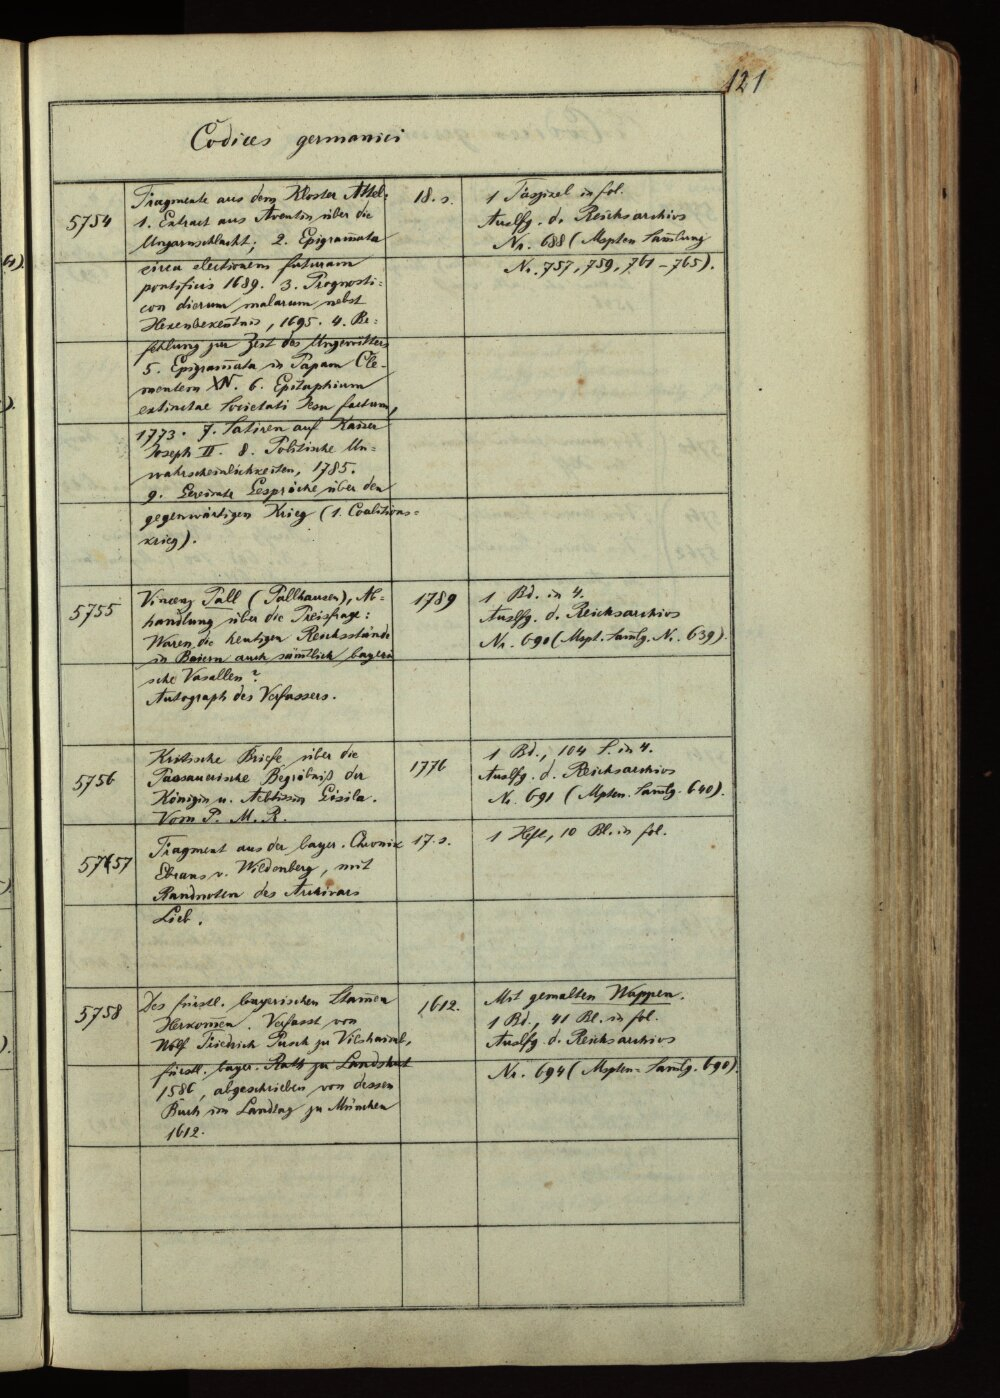 121
Codices germanici
5754
Fragmente aus dem Kloster Attel:
1. Extract aus Aventin über die
Ungarnschlacht; 2. Epigram̅ata
circa electionem futuram
pontificis 1689. 3. Prognosti=
con dierum malarum nebst
Hexenbekentnis, 1695. 4. Be=
fehlung zur Zeit des Ungewitters
5. Epigram̅ata in Papam Cle-
mentem XIV. 6. Epitaphium
extinctae Societati Jesu factum,
1773. 7. Satiren auf Kaiser
Joseph II. 8. Politische Un=
wahrscheinlichkeiten, 1785.
9. Gereimte Gespräche über den
gegenwärtigen Krieg (1. Coalitions=
krieg).
18. s.
1 Faszikel in fol.
Auslfg. d. Reichsarchivs
Nr. 688 (Mspten Sam̅lung
Nr. 757, 759, 761-765).
5755
Vincenz Pall (Pallhausen), Ab=
handlung über die Preisfrage:
Waren die heutigen Reichsstände
in Baiern auch säm̅tlich bayeri
sche Vasallen?
Autograph des Verfassers.
1789
1 Bd. in 4.
Auslfg. d. Reichsarchivs
Nr. 690 (Mspt. Sam̅lg. Nr. 639).
5756
Kritische Briefe über die
Passauerische Begräbniß der
Königin u. Aebtissin Gisila.
Vom P. M. R.
1776
1 Bd., 104 S. in 4.
Auslfg. d. Reichsarchivs
Nr. 691 (Mpten. Sam̅lg. 640).
5757
Fragment aus der bayer. Chronik
Ebrans v. Wildenberg, mit
Randnoten des Archivars
Lieb.
17. s.
1 Heft, 10 Bl. in fol.
5758
Des fürstl. bayerischen Stam̅en
Herkom̅en. Verfasst von
Wolf Friedrich Pusch zu Vilshaimb,
fürstl. bayer. Rath zu Landshut
1586, abgeschrieben von dessen
Buch im Landtag zu München
1612.
1612.
Mit gemalten Wappen.
1 Bd., 41 Bl. in fol.
Auslfg. d. Reichsarchivs
Nr. 694 (Mspten-Sam̅lg. 690).